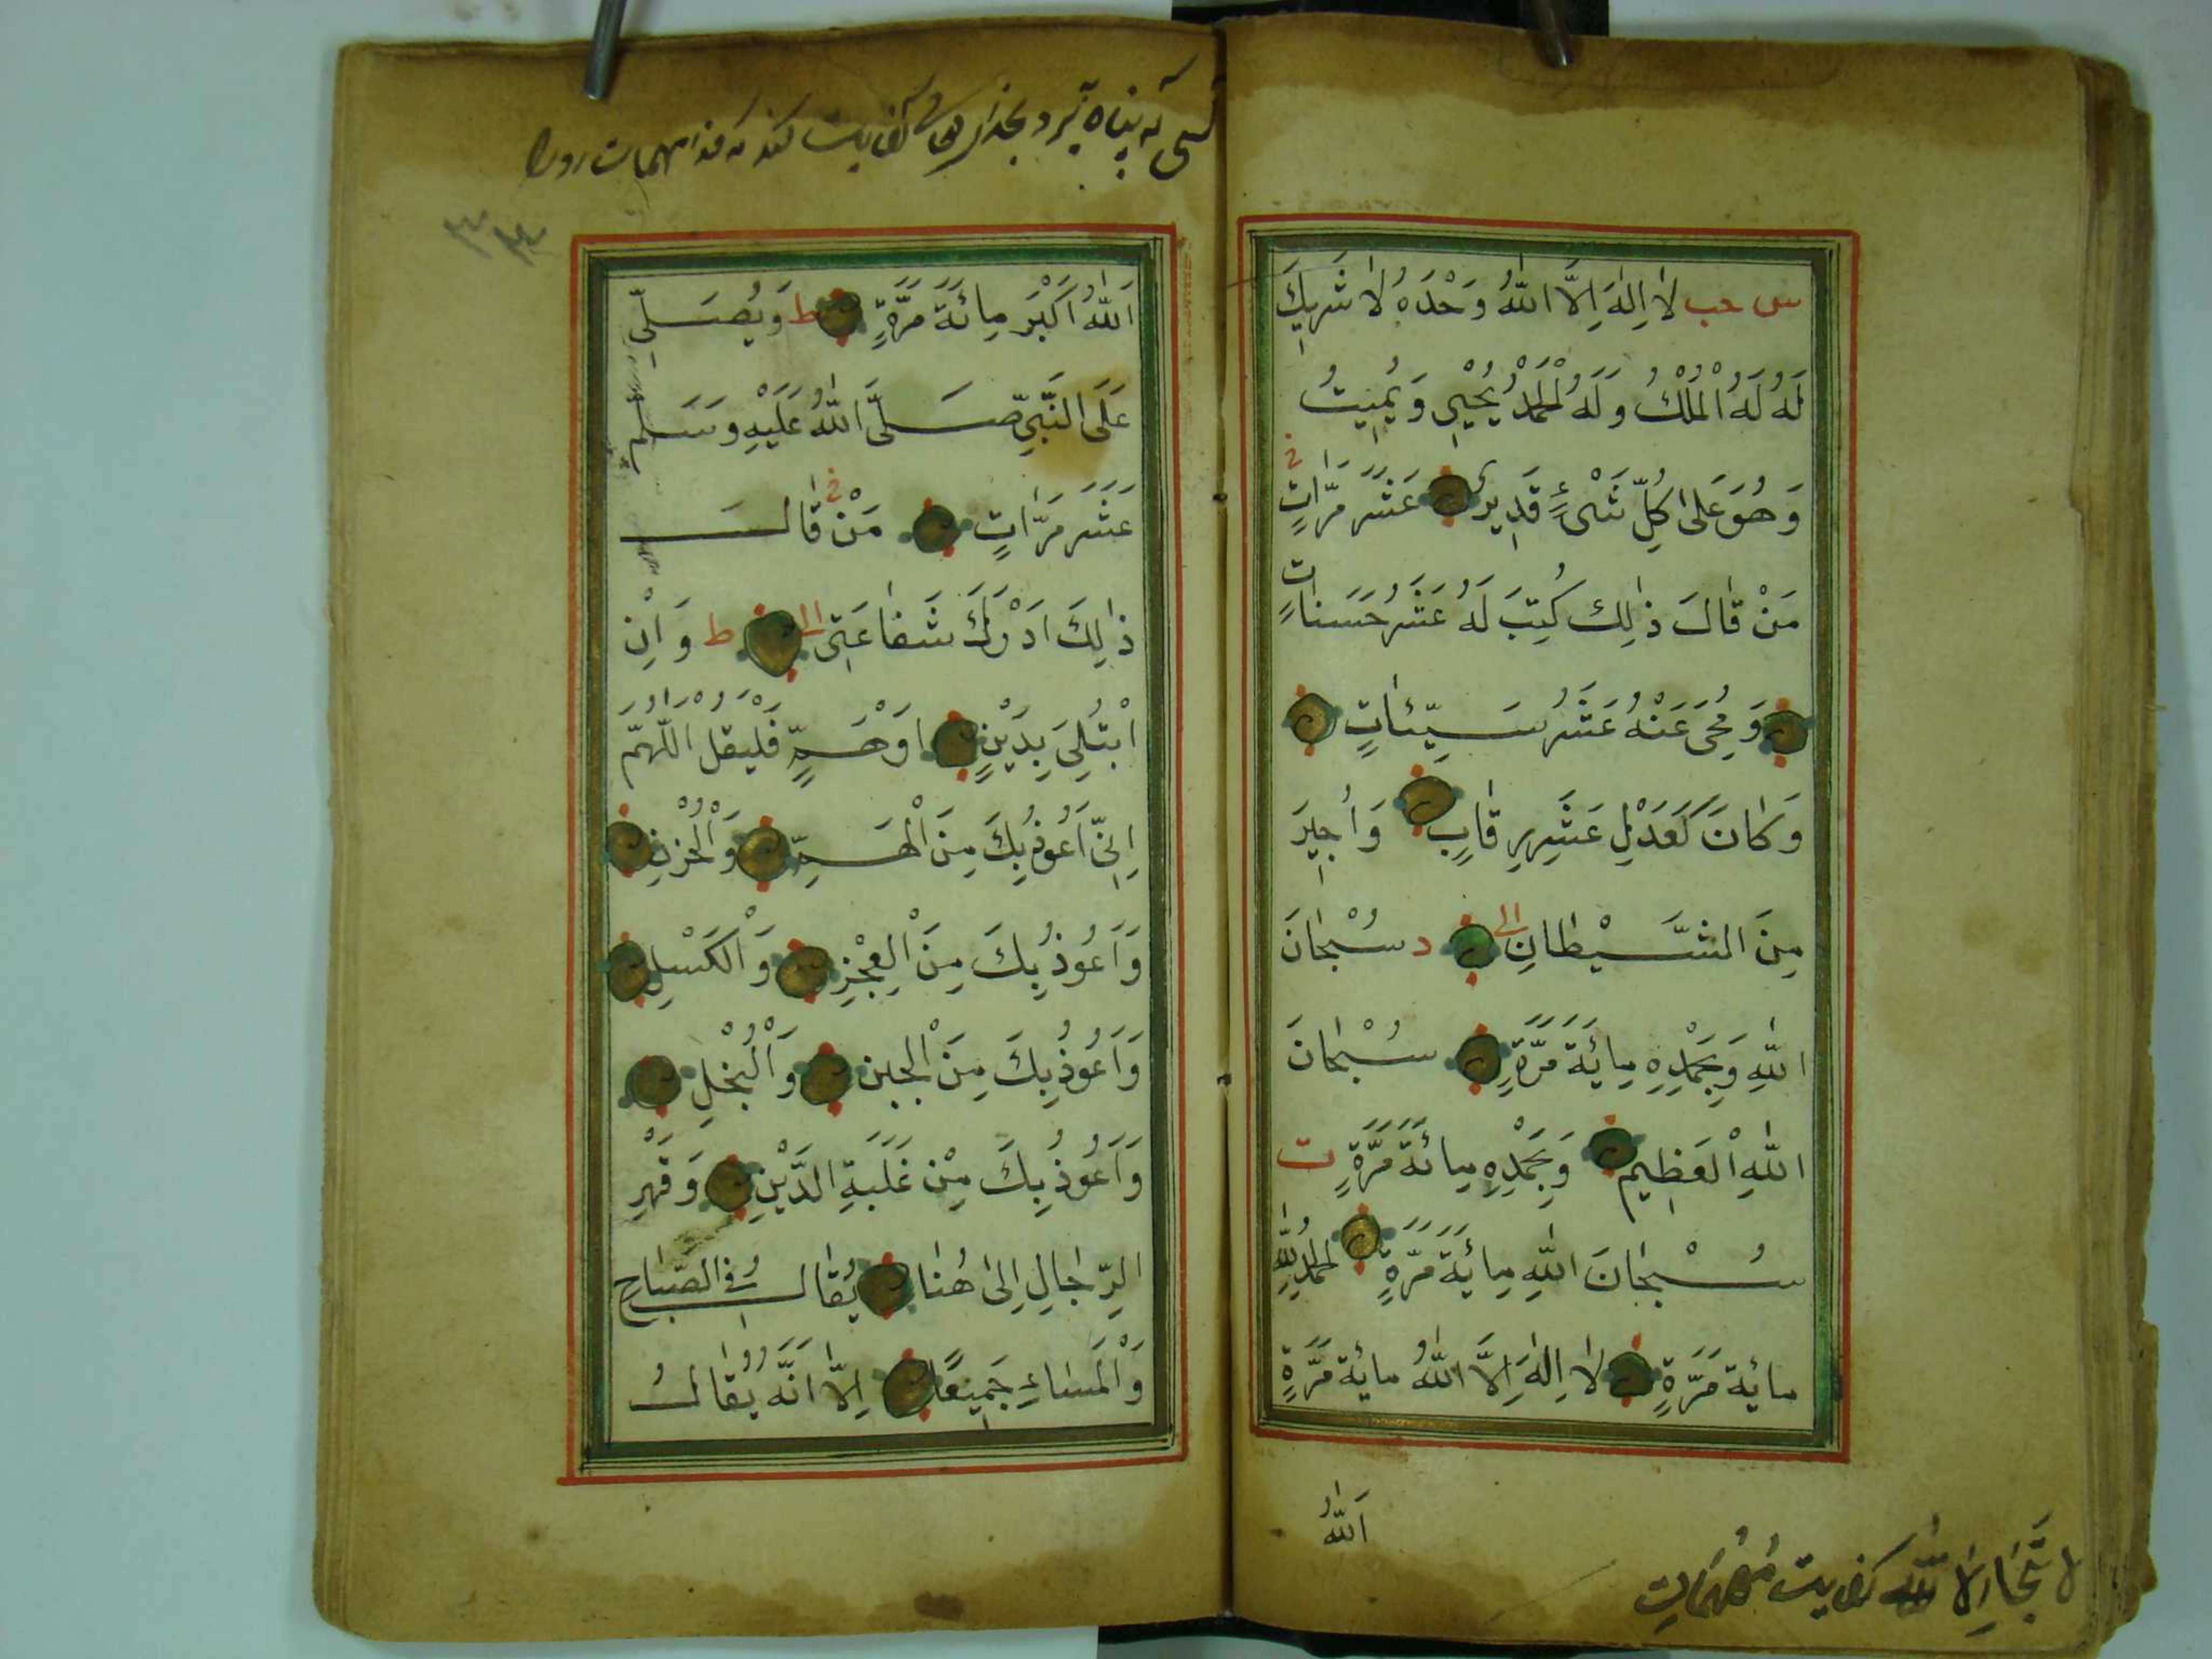 س حب لَا اِلٰهَ اِلَّا اللّٰهُ وَحْدَهُ لَا شَرِيكَ
لَهُ لَهُ الْمُلْكُ وَلَهُ الْحَمْدُ يُحْيِي وَيُمِيتُ
وَهُوَ عَلٰى كُلِّ شَىْءٍ قَدِيرٌ عَشْرَ مَرَّاتٍ
مَنْ قَالَ ذٰلِكَ كُتِبَ لَهُ عَشْرُ حَسَنَاتٍ
وَمُحِىَ عَنْهُ عَشْرُ سَيِّئَاتٍ
وَكَانَ كَعَدْلِ عَشْرِ رِقَابٍ وَاُجِيرَ
مِنَ الشَّيْطَانِ الى د سُبْحَانَ
اللّٰهِ وَبِحَمْدِهِ مِائَةَ مَرَّةٍ سُبْحَانَ
اللّٰهِ الْعَظِيمِ وَبِحَمْدِهِ مِائَةَ مَرَّةٍ ت
سُبْحَانَ اللّٰهِ مِائَةَ مَرَّةٍ الْحَمْدُ لِلّٰهِ
مِائَةَ مَرَّةٍ لَا اِلٰهَ اِلَّا اللّٰهُ مِائَةَ مَرَّةٍ
اَللّٰهُ
كفايت مهمات
كسى كه پناه
اَللّٰهُ اَكْبَرُ مِائَةَ مَرَّةٍ ط وَيُصَلِّى
عَلَى النَّبِىِّ صَلَّى اللّٰهُ عَلَيْهِ وَسَلَّمَ
عَشْرَ مَرَّاتٍ مَنْ قَالَ
ذٰلِكَ اَدْرَكَ شَفَاعَتِى الى ط وَاِنِ
ابْتُلِىَ بِدَيْنٍ اَوْ هَمٍّ فَلْيَقُلْ اَللّٰهُمَّ
اِنِّى اَعُوذُ بِكَ مِنَ الْهَمِّ وَالْحُزْنِ
وَاَعُوذُ بِكَ مِنَ الْعَجْزِ وَالْكَسَلِ
وَاَعُوذُ بِكَ مِنَ الْجُبْنِ وَالْبُخْلِ
وَاَعُوذُ بِكَ مِنْ غَلَبَةِ الدَّيْنِ وَقَهْرِ
الرِّجَالِ اِلٰى هُنَا يُقَالُ فِى الصَّبَاحِ
وَالْمَسَاءِ جَمِيعًا اِلَّا اَنَّهُ يُقَالُ